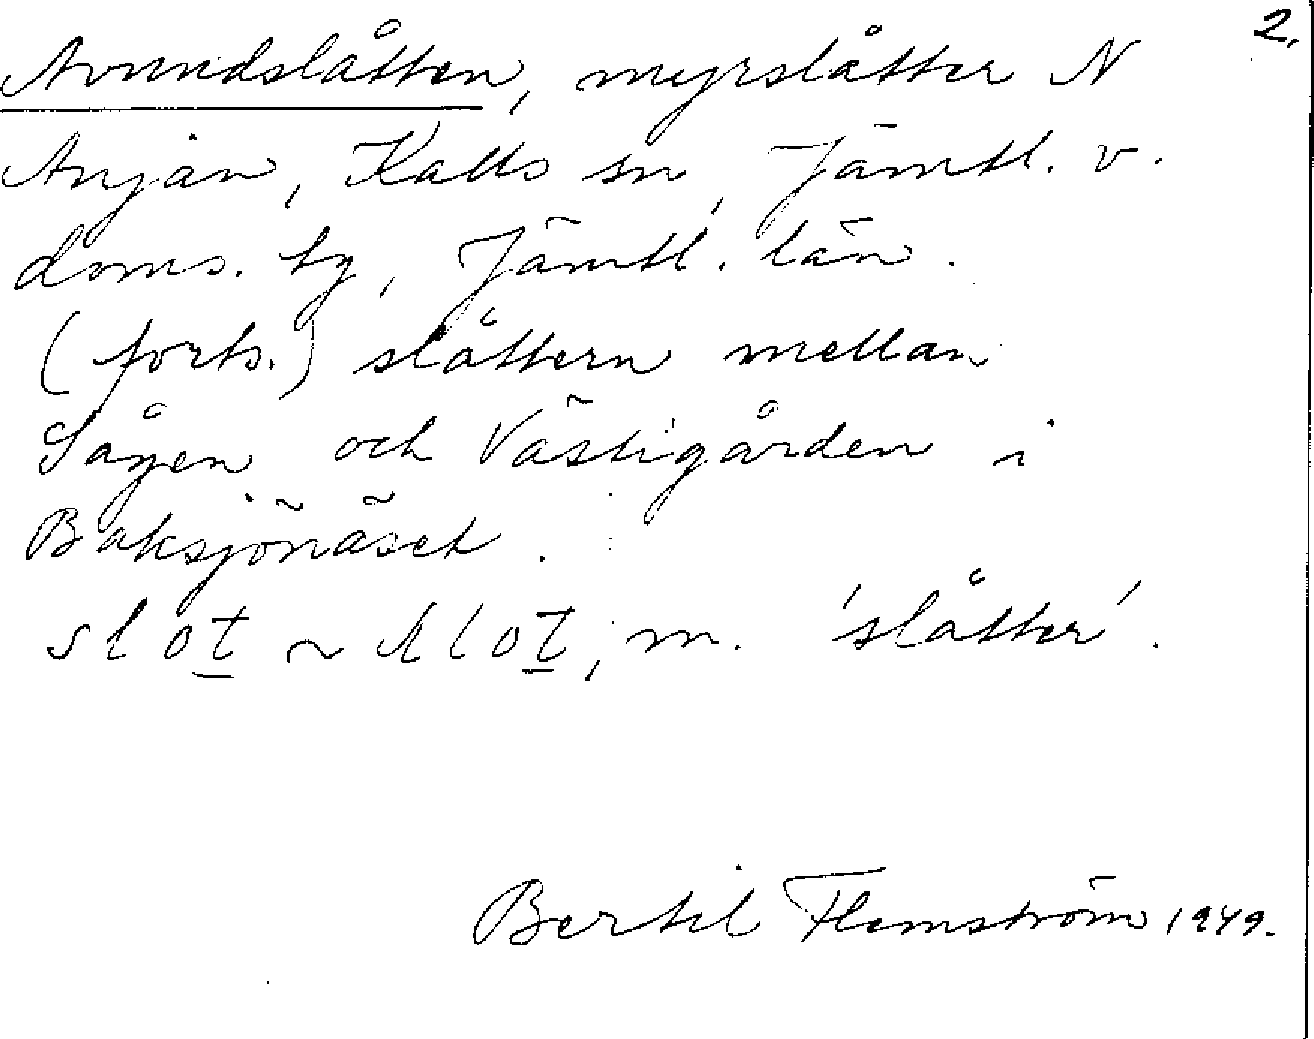 2.
Avundslåtten, myrslåtter N
Anjan, Kalls sn, Jämtl. v.
doms. tg, Jämtl. län.
(forts.) slåttern mellan
Sågen och Västigården i
Baksjönäset.
slot ~ , m. 'slåtter'.
Bertil Flemström 1949.